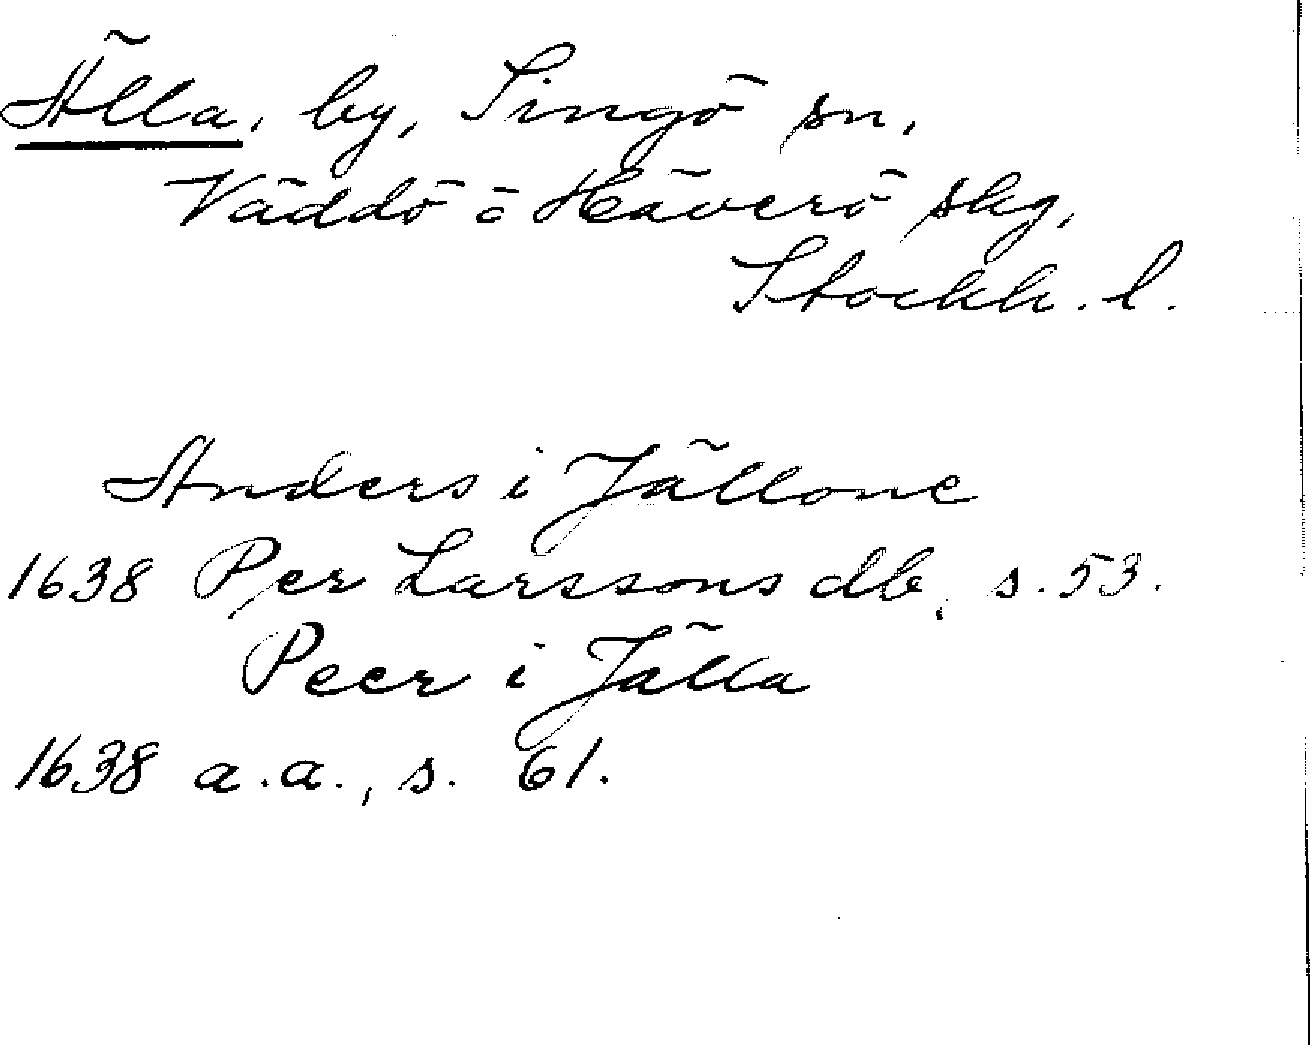 Älla, by, Singö sn,
Väddö o Häverö skg,
Stockh. l.
Anders i Jällone
1638 Per Larssons db, s. 53.
Peer i Jälla
1638 a.a., s. 61.